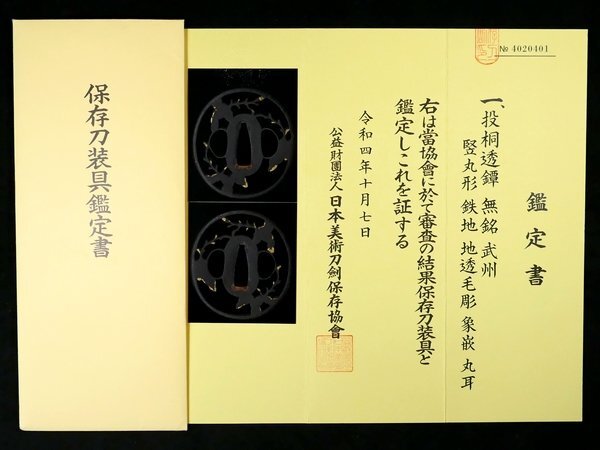 保存刀装具鑑定書
№ 4020401
鑑定書
一、投桐透鐔 無銘 武州
竪丸形 鉄地 地透毛彫 象嵌 丸耳
右は當協會に於て審査の結果保存刀装具と
鑑定しこれを証する
令和四年十月七日
公益財團法人 日本美術刀劍保存協會